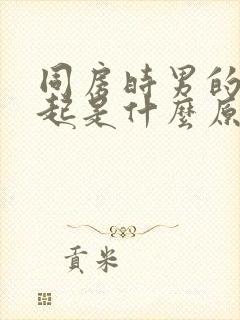 同房時男的
起是什麼原
貢米